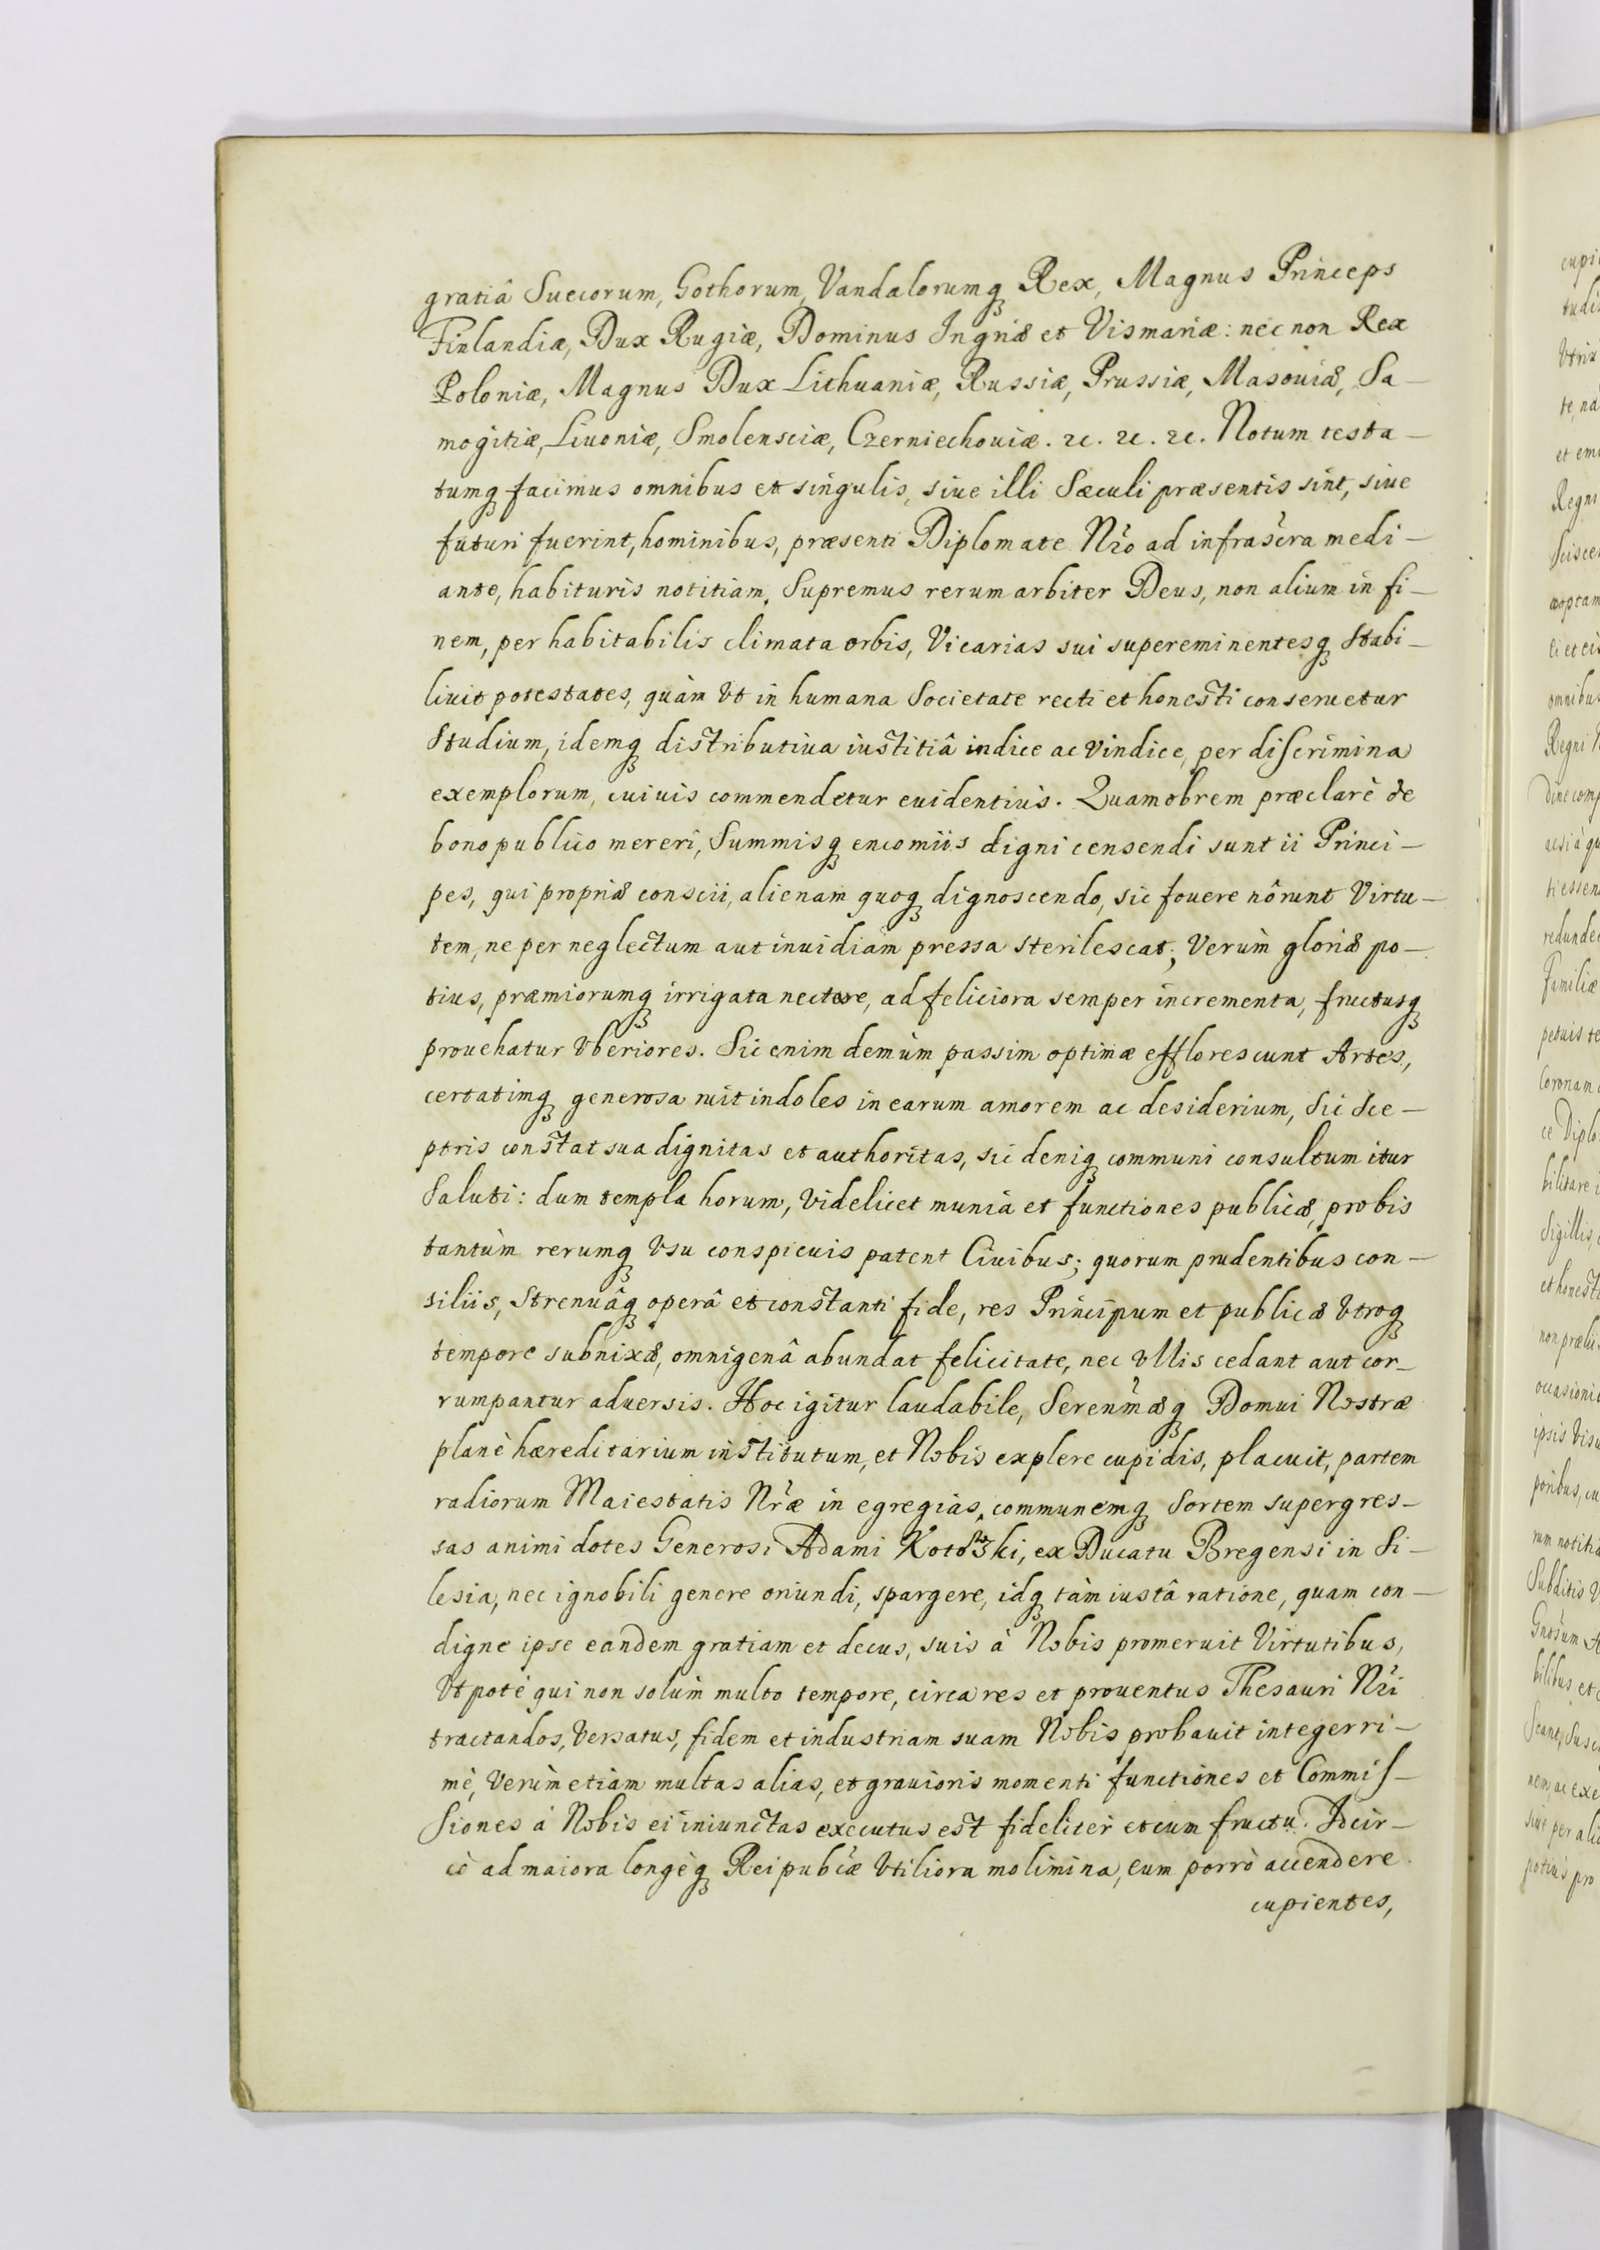 gratiâ Suecorum, Gothorum, Vandalorumq Rex, Magnus Princeps
Finlandiæ, Dux Rugiæ, Dominus Ingriæ et Vismariæ: nec non Rex
Poloniæ, Magnus Dux Lithuaniæ, Russiæ, Prussiæ, Masouiæ, Sa-
mogitiæ, Liuoniæ, Smolensciæ, Czerniechouiæ. ꝛc. ꝛc. ꝛc. Notum testa-
tumq facimus omnibus et singulis, siue illi Sæculi præsentis sint, siue
futuri fuerint, hominibus, præsenti Diplomate Nr̃o ad infrascr̃a medi-
ante, habituris notitiam. Supremus rerum arbiter Deus, non alium in fi-
nem, per habitabilis climata orbis, Vicarias sui supereminentesq stabi-
liuit potestates, quàm Vt in humana Societate recti et honesti conseruetur
Studium, idemq distributiua iustitiâ indice ac vindice, per discrimina
exemplorum, cuiuis commendetur euidentiùs. Quamobrem præclarè de
bono publico mereri, Summisq encomiis digni censendi sunt ii Princi-
pes, qui propriæ conscii, alienam quoq dignoscendo, sic fouere nôrunt Virtu-
tem, ne per neglectum aut inuidiam pressa sterilescat; Verùm gloriæ po-
tius, præmiorumq irrigata nectare, ad feliciora semper incrementa, fructusq
prouehatur Vberiores. Sic enim demùm passim optimæ efflorescunt Artes,
certatimq generosa ruit indoles in earum amorem ac desiderium, Sic Sce-
ptris constat sua dignitas et authoritas, sic deniq communi consultum itur
Saluti: dum templa horum, videlicet munia et functiones publicæ, probis
tantùm rerumq Vsu conspicuis patent Ciuibus; quorum prudentibus con-
siliis, Strenuâq operâ et constanti fide, res Principum et publicæ Vtroq
tempore subnixæ, omnigenâ abundat felicitate, nec Vllis cedant aut cor-
rumpantur aduersis. Hoc igitur laudabile, Serenm̃æq Domui Nostræ
planè hæreditarium institutum, et Nobis explere cupidis, placuit, partem
radiorum Maiestatis Nr̃æ in egregias, communemq Sortem supergres-
sas animi dotes Generosi Adami Kotowski, ex Ducatu Bregensi in Si-
lesia, nec ignobili genere oriundi, spargere, idq tàm iustâ ratione, quam con-
digne ipse eandem gratiam et decus, suis à Nobis promeruit Virtutibus,
Vtpotè qui non solùm multo tempore, circa res et prouentus Thesauri Nr̃i
tractandos, Versatus, fidem et industriam suam Nobis probauit integerri-
mè, Verùm etiàm multas alias, et grauioris momenti functiones et Commis-
Siones à Nobis ei iniunctas executus est fideliter et cum fructu. Idcir-
cò ad maiora longèq Reipubcæ Vtiliora molimina, eum porrò accendere
cupientes,